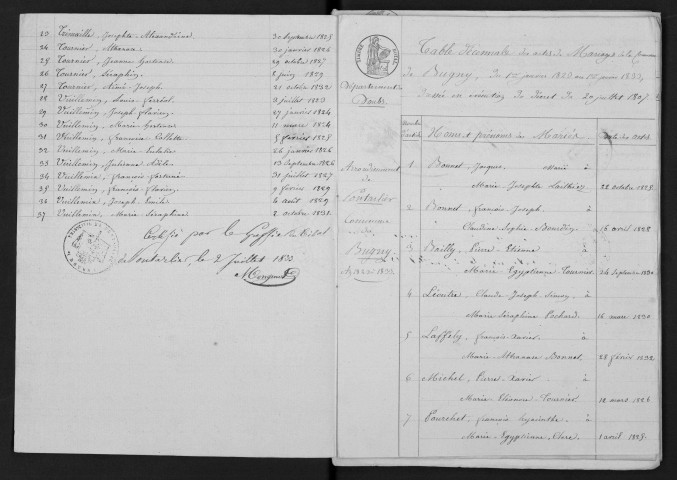 23 Trimaille, Josephte Alexandrine 30 septembre 1825
24 Tournier, Athanase 30 janvier 1826
25 Tournier, Jeanne Gertrude 29 octobre 1827
26 Tournier, Séraphin 8 juin 1829
27 Tournier, Aimé Joseph 21 octobre 1832
28 Vuillemin, Marie Thérèse 2 juillet 1823
29 Vuillemin, Joseph Flavien 27 janvier 1824
30 Vuillemin, Marie Gertrude 11 mars 1824
31 Vuillemin, Jeannine Collette 5 février 1825
32 Vuillemin, Marie Eulalie 26 janvier 1826
33 Vuillemin, Julienne Adèle 13 septembre 1826
34 Vuillemin, françois fortuné 31 juillet 1827
35 Vuillemin, françois flavien 9 février 1829
36 Vuillemin, Joseph Emile 4 août 1829
37 Vuillemin, Marie Séraphine 2 octobre 1831
Certifié par le Greffier du Tribunal
de Pontarlier le 2 Juillet 1833
TIMBRE ROYAL
Table Décennale des actes de Mariage de la commune
de Bugny, du 1er janvier 1823 au 1er janvier 1833,
Dressée en exécution du Décret du 20 juillet 1807.
Département
du Doubs
Arrondissement
de
Pontarlier
Commune
de
Bugny
Noms et prénoms des Mariés
Date des actes
1 Bonnet, Jacques, Marié à
Marie Josephte Laithier 22 octobre 1825
2 Bonnet, françois Joseph, à
Claudine Sophie Bourdin 16 avril 1828
3 Bailly, Pierre Etienne à
Marie Egyptienne Tournier 24 septembre 1830
4 Liévître, Claude Joseph Simon à
Marie Séraphine Pochard 16 mars 1830
5 Laffely, françois Xavier à
Marie Athanase Bonnet 28 février 1832
6 Michel, Pierre Xavier à
Marie Eléonore Tournier 12 mars 1826
7 Pourchet, françois hyacinthe à
Marie Egyptienne Clerc 1 avril 1825